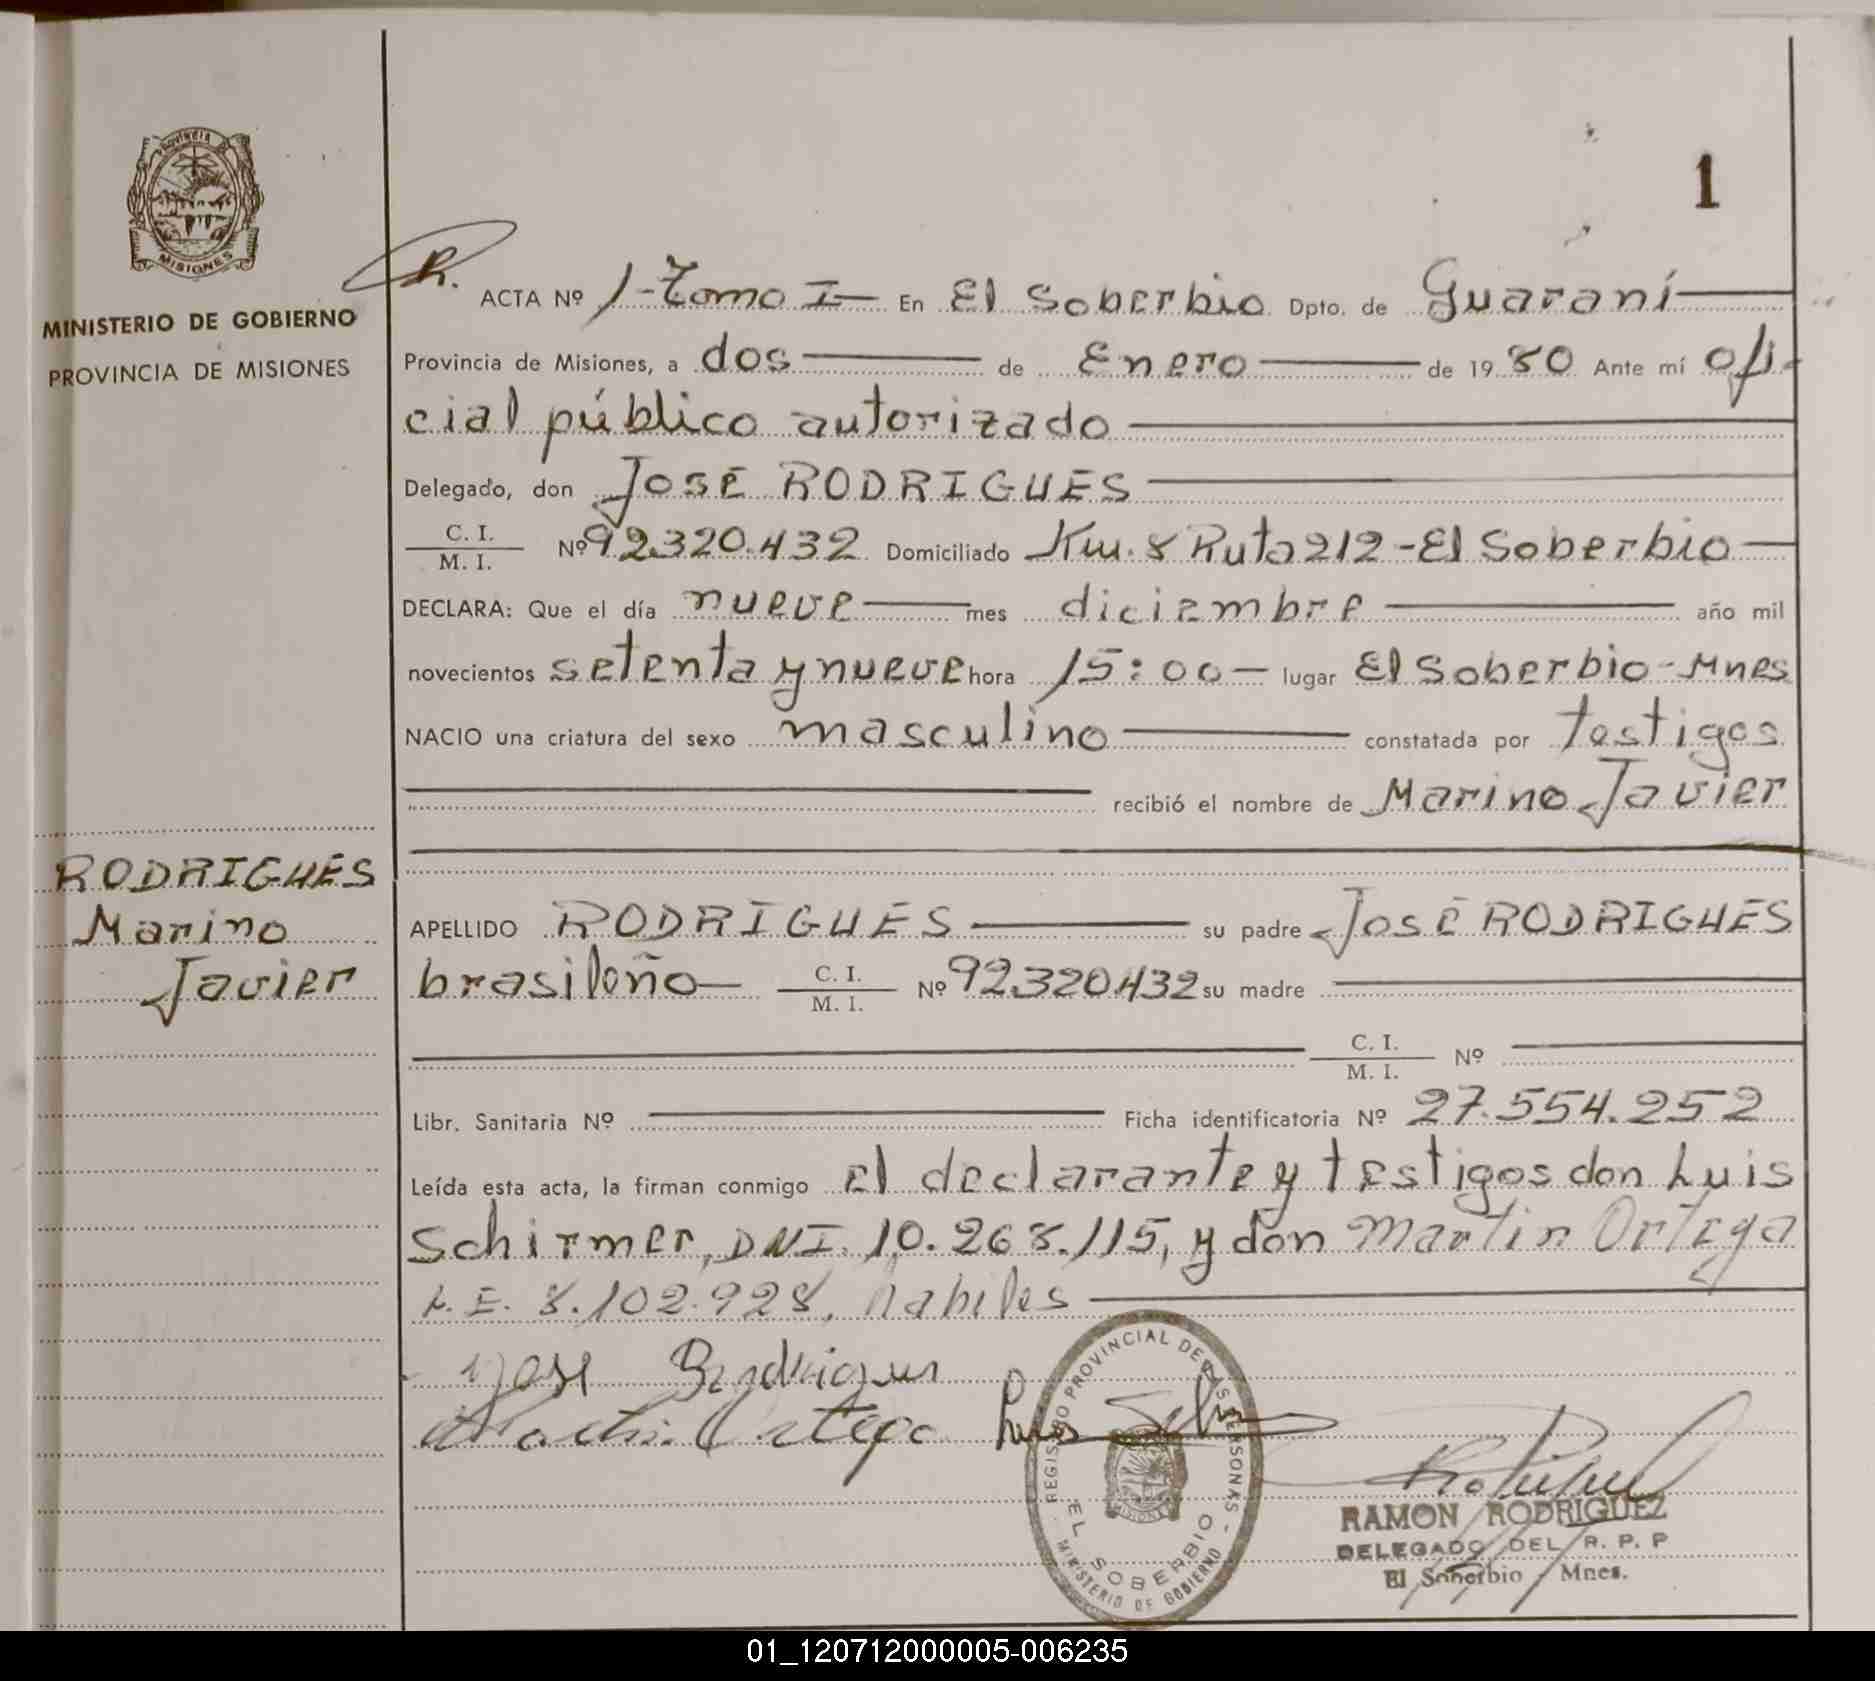 PROVINCIA DE
MISIONES
MINISTERIO DE GOBIERNO
PROVINCIA DE MISIONES
1
R.
ACTA Nº 1-Tomo I- En El Soberbio Dpto. de Guaraní
Provincia de Misiones, a dos de Enero de 1980 Ante mí ofi-
cial público autorizado
Delegado, don JOSÉ RODRIGUES
C. I.
M. I.
Nº 92.320.432 Domiciliado Km. 8 Ruta 212 - El Soberbio
DECLARA: Que el día nueve mes diciembre año mil
novecientos setenta y nueve hora 15:00 - lugar El Soberbio - Mnes
NACIO una criatura del sexo masculino constatada por testigos
recibió el nombre de Marino Javier
RODRIGUES
Marino
Javier
APELLIDO RODRIGUES su padre JOSÉ RODRIGUES
brasileño C. I. M. I. Nº 92.320.432 su madre
C. I. M. I. Nº
Libr. Sanitaria Nº Ficha identificatoria Nº 27.554.252
Leída esta acta, la firman conmigo El declarante y testigos don Luis
Schirmer, DNI. 10.268.115, y don Martin Ortega
L.E. 8.102.928, habiles
Jose Rodrigues
Martin Ortega Luis
REGISTRO PROVINCIAL DE LAS PERSONAS
EL SOBERBIO
MINISTERIO DE GOBIERNO
RAMON RODRIGUEZ
DELEGADO DEL R. P. P
El Soberbio - Mnes.
01_120712000005-006235